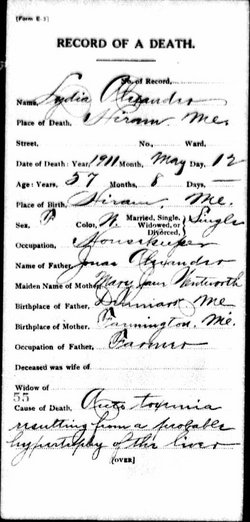 [Form E-3]
RECORD OF A DEATH.
No. of Record,
Name, Lydia Alexander
Place of Death, Hiram Me.
Street, No., Ward.
Date of Death: Year, 1911 Month, May Day, 12
Age: Years, 57 Months, 8 Days, —
Place of Birth, Hiram, Me.
Sex, F Color, W. Married, Single, Widowed, or Divorced, Single
Occupation, Housekeeper
Name of Father, Jonas Alexander
Maiden Name of Mother, Mary Jane Wentworth
Birthplace of Father, Denmark Me
Birthplace of Mother, Farmington, Me.
Occupation of Father, Farmer
Deceased was wife of
Widow of
55
Cause of Death, Auto toxemia
resulting from a probable
hypertrophy of the liver
[OVER]